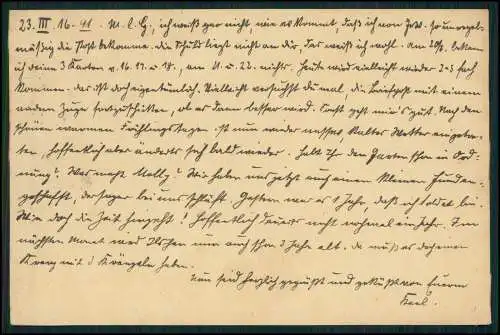 23. III 16. M. l. G., ich weiß gar nicht wie es kommt, daß ich von so unregel-
mäßig die Post bekomme. die Schuld liegt nicht an dir, das weiß ich wohl. Am 20. bekam
ich deine 3 Karten v. 16. 17. u. 18., am 21. u. 22. nichts. Heute wird vielleicht wieder 2-3 fach
kommen. das ist doch eigentümlich. Vielleicht versuchst du mal, die Briefpost mit einem
andern Zuge fortzuschicken, ob es dann besser wird. Sonst geht mir's gut. Nach den
schönen warmen Frühlingstagen ist nun wieder nasses, kaltes Wetter eingetre-
ten, hoffentlich aber ändert's sich bald wieder. Habt Ihr den Garten schon in Ord-
nung? Was macht Molly? Wir haben uns jetzt auch einen kleinen Hund an-
geschafft, der sogar bei uns schläft. Gestern war es 1 Jahr, daß ich Soldat bin.
Wie doch die Zeit hingeht! Hoffentlich dauert's nicht nochmal ein Jahr. Im
nächsten Monat wird Ilschen nun auch schon 3 Jahr alt. da muß es doch einen
Kranz mit 3 Kränzeln haben.
Nun seid herzlich gegrüßt und geküßt von Euerm
Karl.